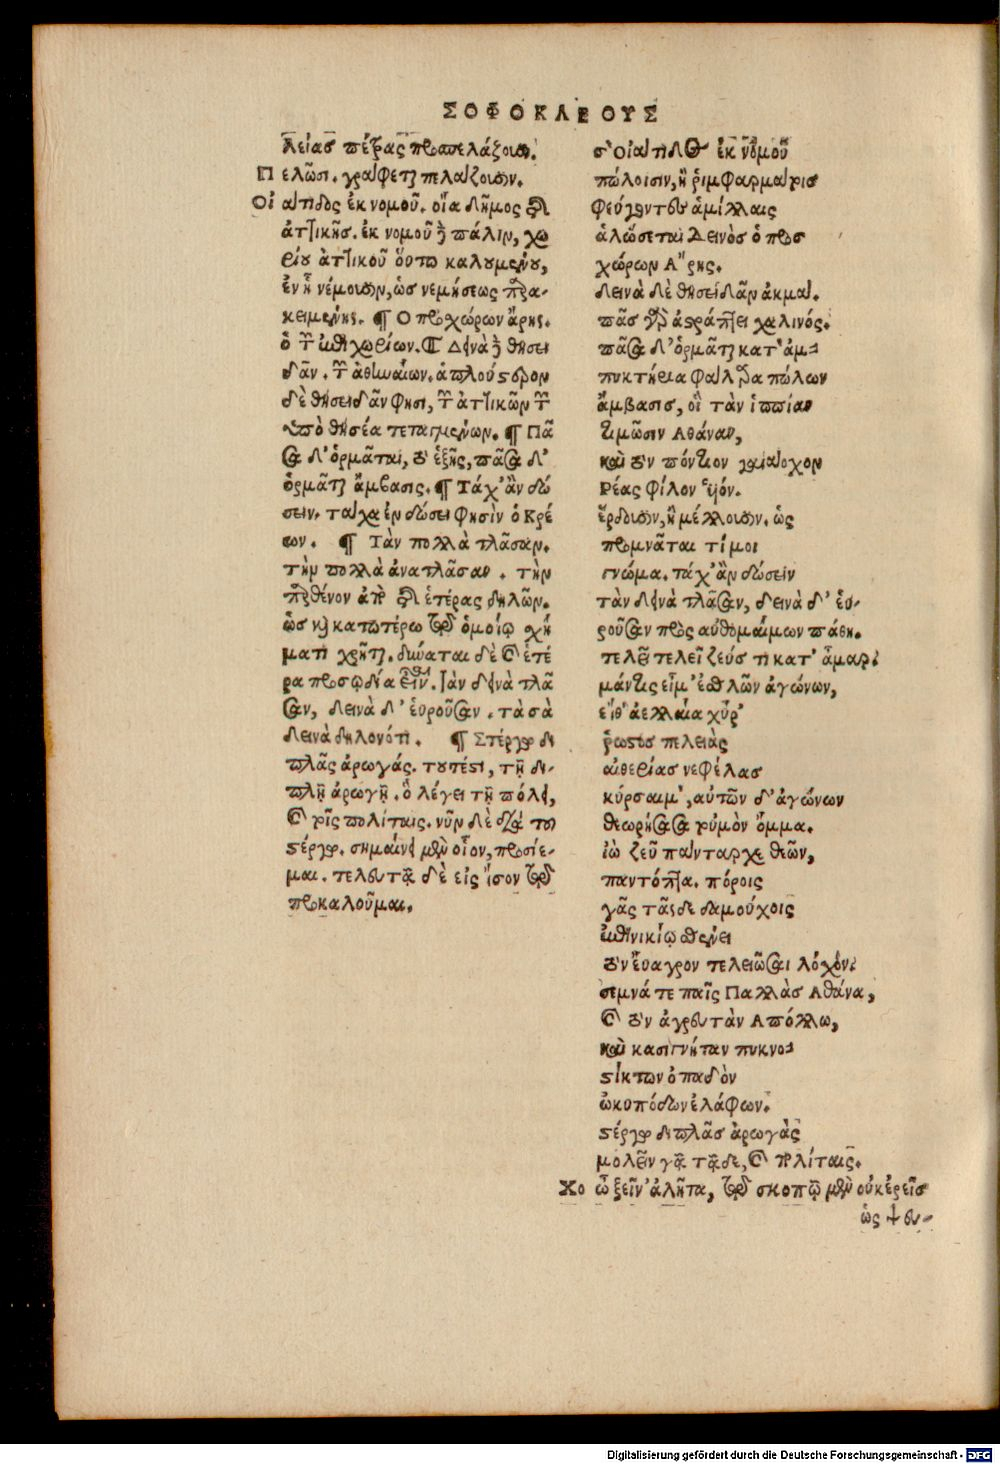 ΣΟΦΟΚΛΕΟΥΣ
λείασ πέτρας προσπελάζουσιν.
Π ελῶσι. γράφεται πελάζουσιν.
Οἰ άτιδος ἐκ νομοῦ. οἷα δῆμος τῆς
ἀττικῆς. ἐκ νομοῦ δὲ πάλιν, χω
ρίου ἀττικοῦ οὕτω καλουμένου,
ἐν ᾗ νέμουσιν, ὡσ νεμήσεως παρα-
κειμένης. ¶ Ο προχώρων ἄρης.
ὁ τῶν χωρίων. ¶ Δεινὰ δὲ θησει
δᾶν. τῶν ἀθηναίων. ἁπλούστερον
δὲ θησειδᾶν φησι, τῶν ἀττικῶν τῶν
ὑπὸ θησέα τεταγμένων. ¶ Πᾶ
σα δ' ὁρμᾶται, οὐ ἑξῆς, πᾶσα δ'
ὁρμᾶται ἄμβασις. ¶ Τάχ' ἂν δώ
σειν. τάχα ἐν δώσει φησὶν ὁ Κρέ
ων. ¶ Τὰν πολλὰ τλᾶσαν.
τὴν πολλὰ ἀνατλᾶσαν. τὴν
παρθένον ἀπὸ τῆς ἑτέρας δηλῶν.
ὡσ καὶ κατωτέρω τῷ ὁμοίῳ σχή
ματι χρῆται. δύναται δὲ καὶ ἑτέ
ρα προσῳδία εἶναι. τὰν δεινὰ τλᾶ
σαν, δεινὰ δ' εὑροῦσαν. τὰ σὰ
δεινὰ δηλονότι. ¶ Στέργω δι
πλᾶς ἀρωγάς. τουτέστι, τῇ δι-
πλῇ ἀρωγῇ. ὃ λέγει τῇ πόλει,
καὶ τοῖς πολίταις. νῦν δὲ διὰ τοῦ
στέργω. σημαίνει μὲν οἷον, προσίε-
μαι. τελευτᾷ δὲ εἰς ἴσον τῷ
προκαλοῦμαι.
σ' Οἰάτιδος ἐκ νόμοῦ
πώλοισιν, ἢ ῥιμφαρμάρισ
φεύγοντες ἁμίλλαις
ἁλώσεται Δεινὸσ ὁ προσ
χώρων Ἄρης.
δεινὰ δὲ θησείδᾶν ἀκμά.
πᾶσ γὰρ ἀστράπτει χαλινός.
πᾶσα δ' ὁρμᾶται κατ' ἀμ-
πυκτήρια φάλαρα πώλων
ἄμβασις, οἳ τὰν ἱππίαν
τιμῶσιν Αθάναν,
καὶ τὸν πόντιον γαιάοχον
Ρέας φίλον υἱόν.
ἔρδουσιν, ἢ μέλλουσιν. ὡς
προμνᾶται τί μοι
γνώμα. τάχ' ἂν δώσειν
τὰν δεινὰ τλᾶσαν, δεινὰ δ' εὑ-
ροῦσαν πρὸς αὐθομαίμων πάθη.
τελεῖ τελεῖ ζεύσ τι κατ' ἆμαρ.
μάντις εἰμ' ἐσθλῶν ἀγώνων,
εἴθ' ἀελλαία ταχύρ'
ῥωστοσ πελειὰς
αἰθερίασ νεφέλασ
κύρσαιμ', αὐτῶν δ' ἀγώνων
θεωρήσασα τοὐμὸν ὄμμα.
ἰὼ ζεῦ πάνταρχε θεῶν,
παντόπτα. πόροις
γᾶς τᾶσδε δαμούχοις
ἐπινικίῳ σθένει
τὸν εὔαγρον τελειῶσαι λόχον.
σεμνά τε παῖς Παλλὰσ Αθάνα,
καὶ τὸν ἀγρευτὰν Απόλλω,
καὶ κασιγνήταν πυκνο-
στίκτων ὀπαδὸν
ὠκυπόδων ἐλάφων.
στέργω διπλᾶσ ἀρωγὰς
μολεῖν γᾷ τᾷδε, καὶ πολίταις.
Χο ὦ ξεῖν' ἀλῆτα, τῷ σκοπῷ μὲν οὐκ ἐρεῖσ
ὡς ψευ-
Digitalisierung gefördert durch die Deutsche Forschungsgemeinschaft - DFG